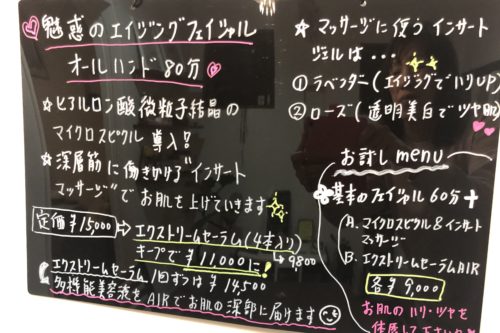 魅惑のエイジングフェイシャル
オールハンド80分
☆ヒアルロン酸微粒子結晶の
マイクロスピクル 導入!
☆深層筋に働きかける"インサート
マッサージ"でお肌を上げていきます
定価¥15,000
エクストリームセーラム(4本入り)
キープで¥11,000に!
9,800
エクストリームセーラム1回ずつは¥14,500
多機能美容液をAIRでお肌の深部に届けます
☆マッサージに使うインサート
ジェルは…
①ラベンダー(エイジングでハリUP)
②ローズ(透明美白でツヤ肌)
お試しmenu
基本のフェイシャル60分+
A. マイクロスピクル&インサート
マッサージ
B. エクストリームセーラムAIR
各¥9,000
お肌のハリ・ツヤを
体感して